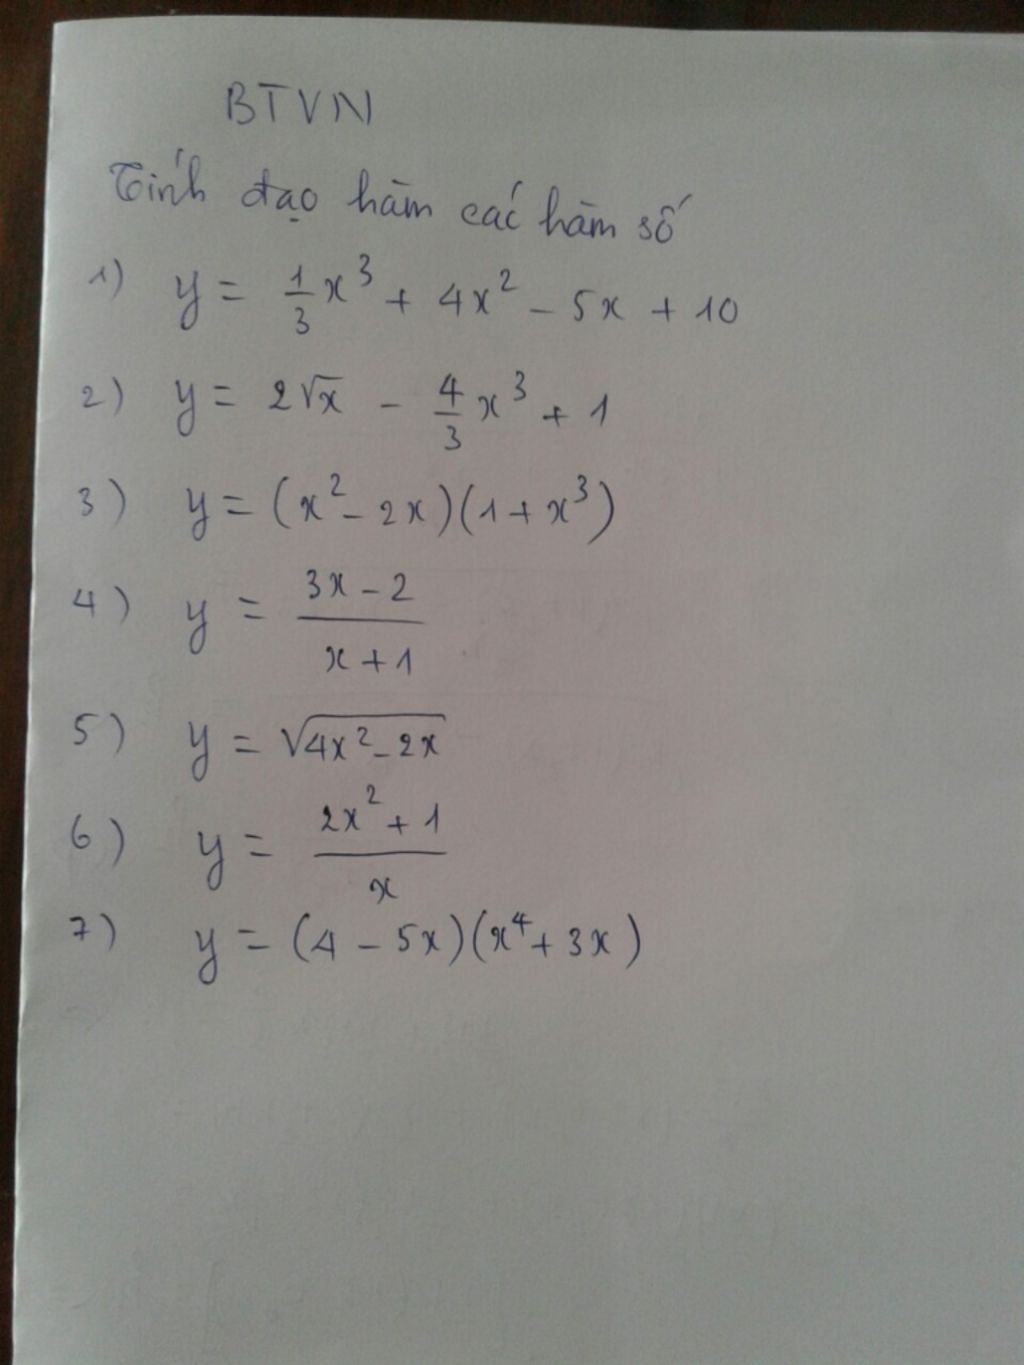 BTVN
Tính đạo hàm các hàm số
1) y = 1/3 x³ + 4x² - 5x + 10
2) y = 2√x - 4/3 x³ + 1
3) y = (x² - 2x)(1 + x³)
4) y = (3x - 2)/(x + 1)
5) y = √(4x² - 2x)
6) y = (2x² + 1)/x
7) y = (4 - 5x)(x⁴ + 3x)